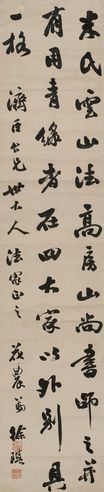 米氏雲山法高房山尚書師之并
有用青綠者在四大家以外別具
一格
濟臣公兄世大人法家正之
花農弟徐琪